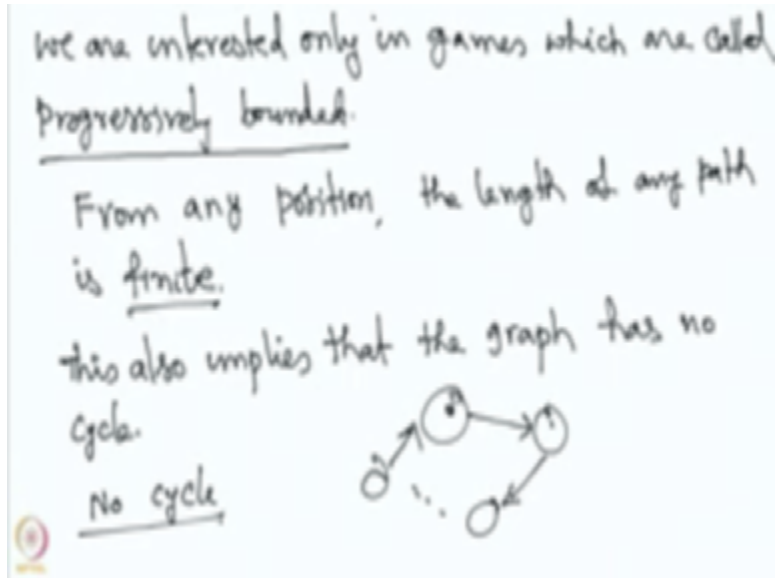 we are interested only in games which are called
Progressively bounded.
From any position, the length of any path
is finite.
This also implies that the graph has no
cycle.
No cycle